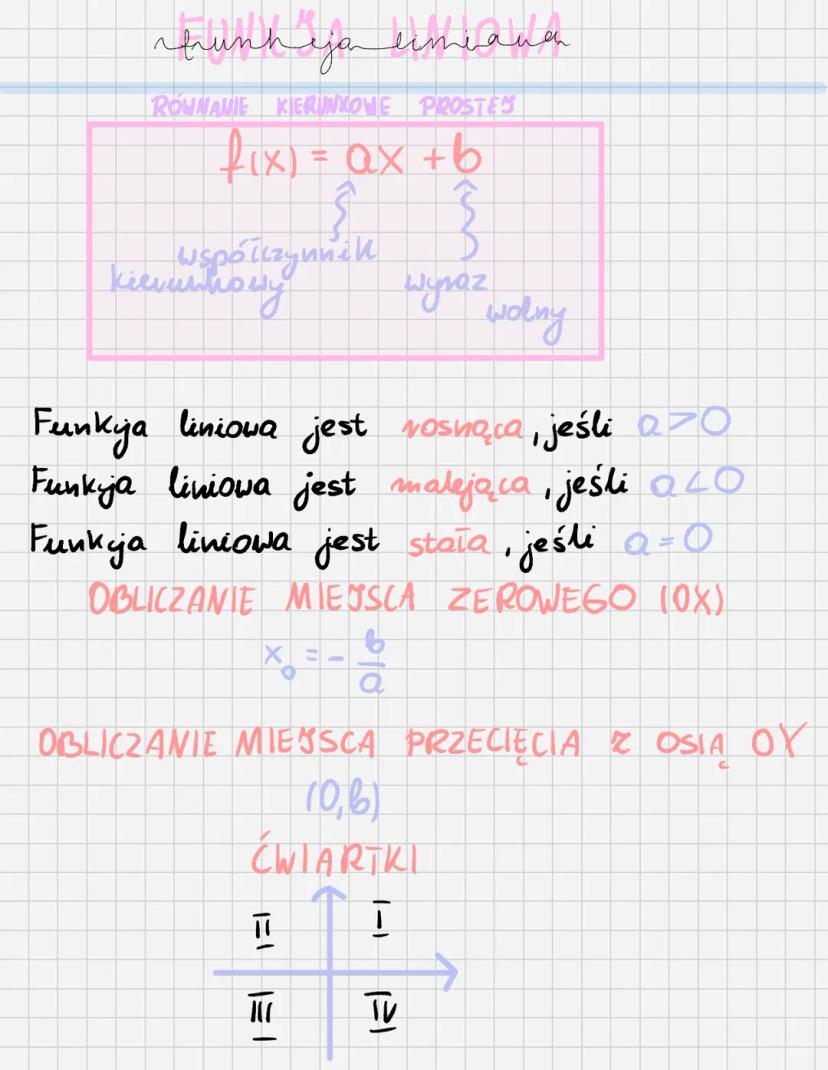 FUNKCJA LINIOWA
funkcja liniowa
RÓWNANIE KIERUNKOWE PROSTEJ
f(x) = ax + b
współczynnik
kierunkowy
wyraz
wolny
Funkcja liniowa jest rosnąca, jeśli a > 0
Funkcja liniowa jest malejąca, jeśli a < 0
Funkcja liniowa jest stała, jeśli a = 0
OBLICZANIE MIEJSCA ZEROWEGO (OX)
x₀ = - b/a
OBLICZANIE MIEJSCA PRZECIĘCIA Z OSIĄ OY
(0,b)
ĆWIARTKI
II I
III IV